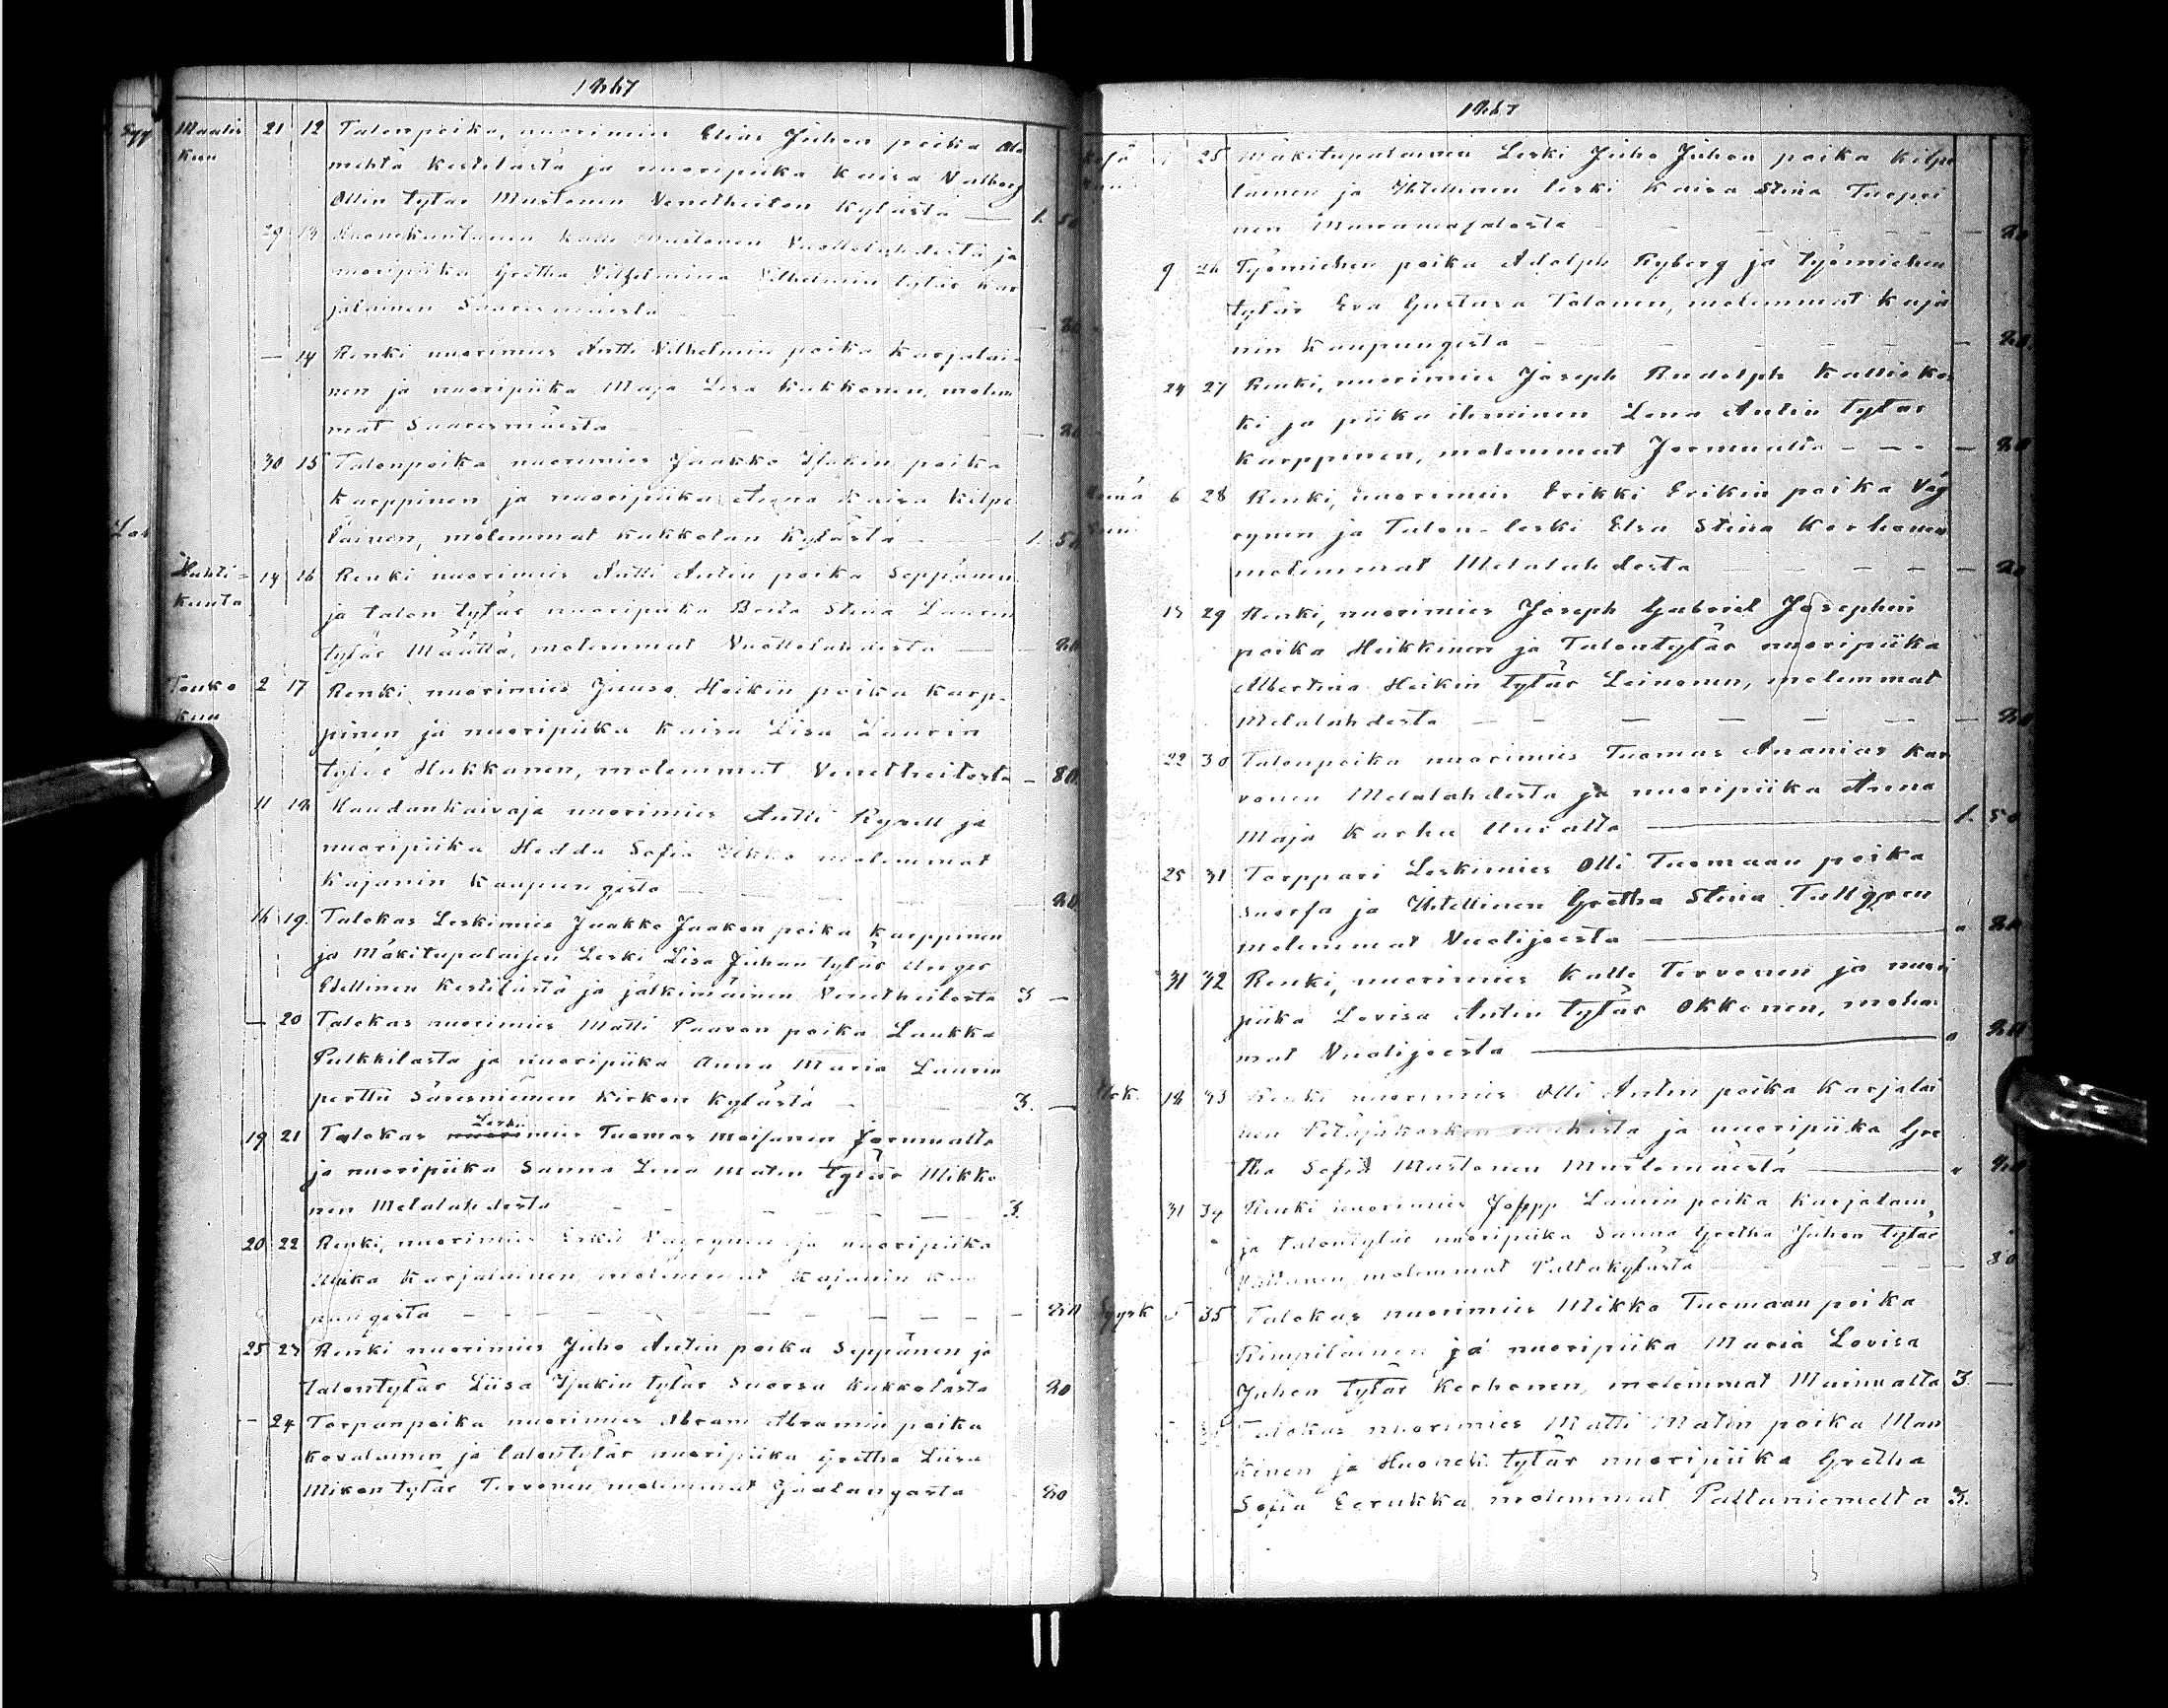 1867
Maalis 21 12 Talonpoika, nuorimies Elias Juhon poika Ala
kuu mehtä Kestilästä ja nuoripiika Kaisa Valborg
Ollin tytär Mustonen Venetheiton kylästä — 1. 50
29 13 Huonekuntanen Kalle Mustonen Vuottolahdesta ja
nuoripiika Gretha Vilhelmina Vilhelmin tytär Kar
jalainen Saaresmäestä — 80
— 14 Renki nuorimies Antti Vilhelmin poika Karjalai-
nen ja nuoripiika Maja Lesa Kukkonen, molem
mat Saaresmäestä — 80
30 15 Talonpoika nuorimies Jaakko Isakin poika
Karppinen ja nuoripiika Anna Kaisa Kilpe
läinen, molemmat Kukkolan kylästä — 1. 50
Huhti= 14 16 Renki nuorimies Antti Antin poika Seppänen
kuuta ja talon tytär nuoripiika Brita Stina Laurin
tytär Määttä, molemmat Vuottolahdesta — 80
Touko 2 17 Renki nuorimies Juuso Heikin poika Karp-
kuu pinen ja nuoripiika Kaisa Lisa Laurin
tytär Hukkanen, molemmat Venetheitosta — 80
11 18 Haudankaivaja nuorimies Antti Ryhell ja
nuoripiika Hedda Sofia molemmat
Kajanin Kaupungista 80
16 19. Talokas Leskimies Jaakko Jaakon poika Karppinen
ja Mäkitupalaisen Leski Lisa Juhon tytär Unger
Edellinen Kestilästä ja jälkimäinen Venetheitosta 3 —
— 20 Talokas nuorimies Matti Paavon poika Laukka
Pulkkilasta ja nuoripiika Anna Maria Laurin
perttu Säresniemen Kirkon kylästä — 3. —
Leski
19 21 Talokas nuorimies Tuomas Moisanen Jormualta
ja nuoripiika Sanna Lena Matin tytär Mikko
nen Melalahdesta — 3.
20 22 Renki, nuorimies Erkki Väyrynen ja nuoripiika
Ulrika Karjalainen molemmat Kajanin Kau
pungista — 80
25 23 Renki nuorimies Juho Antin poika Seppänen ja
talontytär Liisa Isakin tytär Suorsa Kukkolasta 80
— 24 Torpanpoika nuorimies Abram Abramin poika
Kovalainen ja talontytär nuoripiika Gretha Liisa
Mikon tytär Tervonen molemmat Jaalangasta 80
1867
25 Mäkitupalainen Leski Juho Juhon poika Kilpe
läinen ja Itsellinen leski Kaisa Stina Turpei
nen Manamasalosta — 80
9 26 Työmiehen poika Adolph Ryberg ja työmiehen
tytär Eva Gustava Tolonen, molemmat Kaja
nin Kaupungista — 80.
24 27 Renki, nuorimies Joseph Rudolph Kalliokos
ki ja piika ihminen Lena Antin tytär
Karppinen, molemmat Jormualta — 80
Heinä 6 28 Renki, nuorimies Erikki Erikin poika Väy
kuu rynen ja Talon-leski Elsa Stina Korhonen
molemmat Melalahdesta — 80
15 29 Renki, nuorimies Joseph Gabriel Josephin
poika Heikkinen ja Talontytär nuoripiika
Albertina Heikin tytär Leinonen, molemmat
Melalahdesta — 80
22 30 Talonpoika nuorimies Tuomas Ananias Kar
vonen Melalahdesta ja nuoripiika Anna
Maja Karhu Uuralta — 1. 50
25 31 Torppari Leskimies Olli Tuomaan poika
Suorsa ja Itsellinen Gretha Stina Tullgren
molemmat Vuolijoesta — " 80
31 32 Renki, nuorimies Kalle Tervonen ja nuori
piika Lovisa Antin tytär Okkonen, molem
mat Vuolijoesta — " 80
Elok. 18 33 Renki nuorimies Olli Antin poika Karjalai
nen Petäjäkosken ja nuoripiika Gre
tha Sofia Mustonen Mustomäestä — " 80
31 34 Renki nuorimies Josepp Laurin poika Karjalain,
ja talontytär nuoripiika Sanna Gretha Juhon tytär
molemmat Paltakylästä — 80
Syysk 5 35 Talokas nuorimies Mikko Tuomaan poika
Rimpiläinen ja nuoripiika Maria Lovisa
Juhon tytär Korhonen, molemmat Mainualta 3. —
Talokas nuorimies Matti Matin poika Man
kinen ja Huonek. tytär nuoripiika Gretha
Sofia Eerukka molemmat Paltaniemeltä 3.